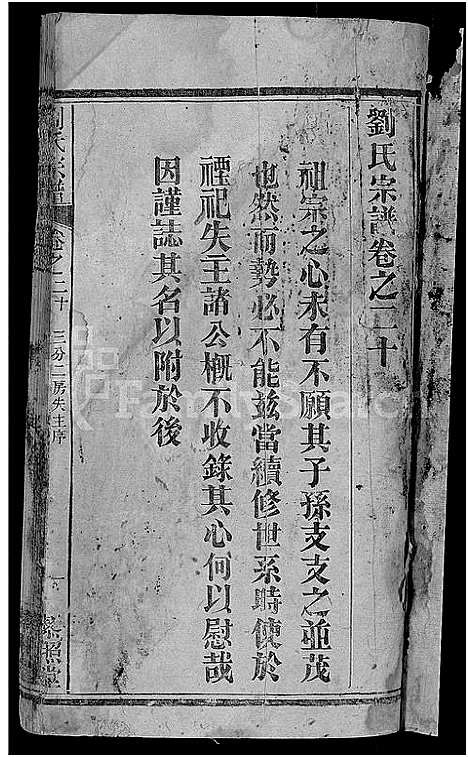 劉氏宗譜卷之二十
祖宗之心未有不願其子孫支支之並茂
也然而勢必不能茲當續修世系時使於
禋祀失主諸公概不收錄其心何以慰哉
因謹誌其名以附於後
劉氏宗譜
卷之二十
三分二房失主序
一
藜照堂
FamilySearch